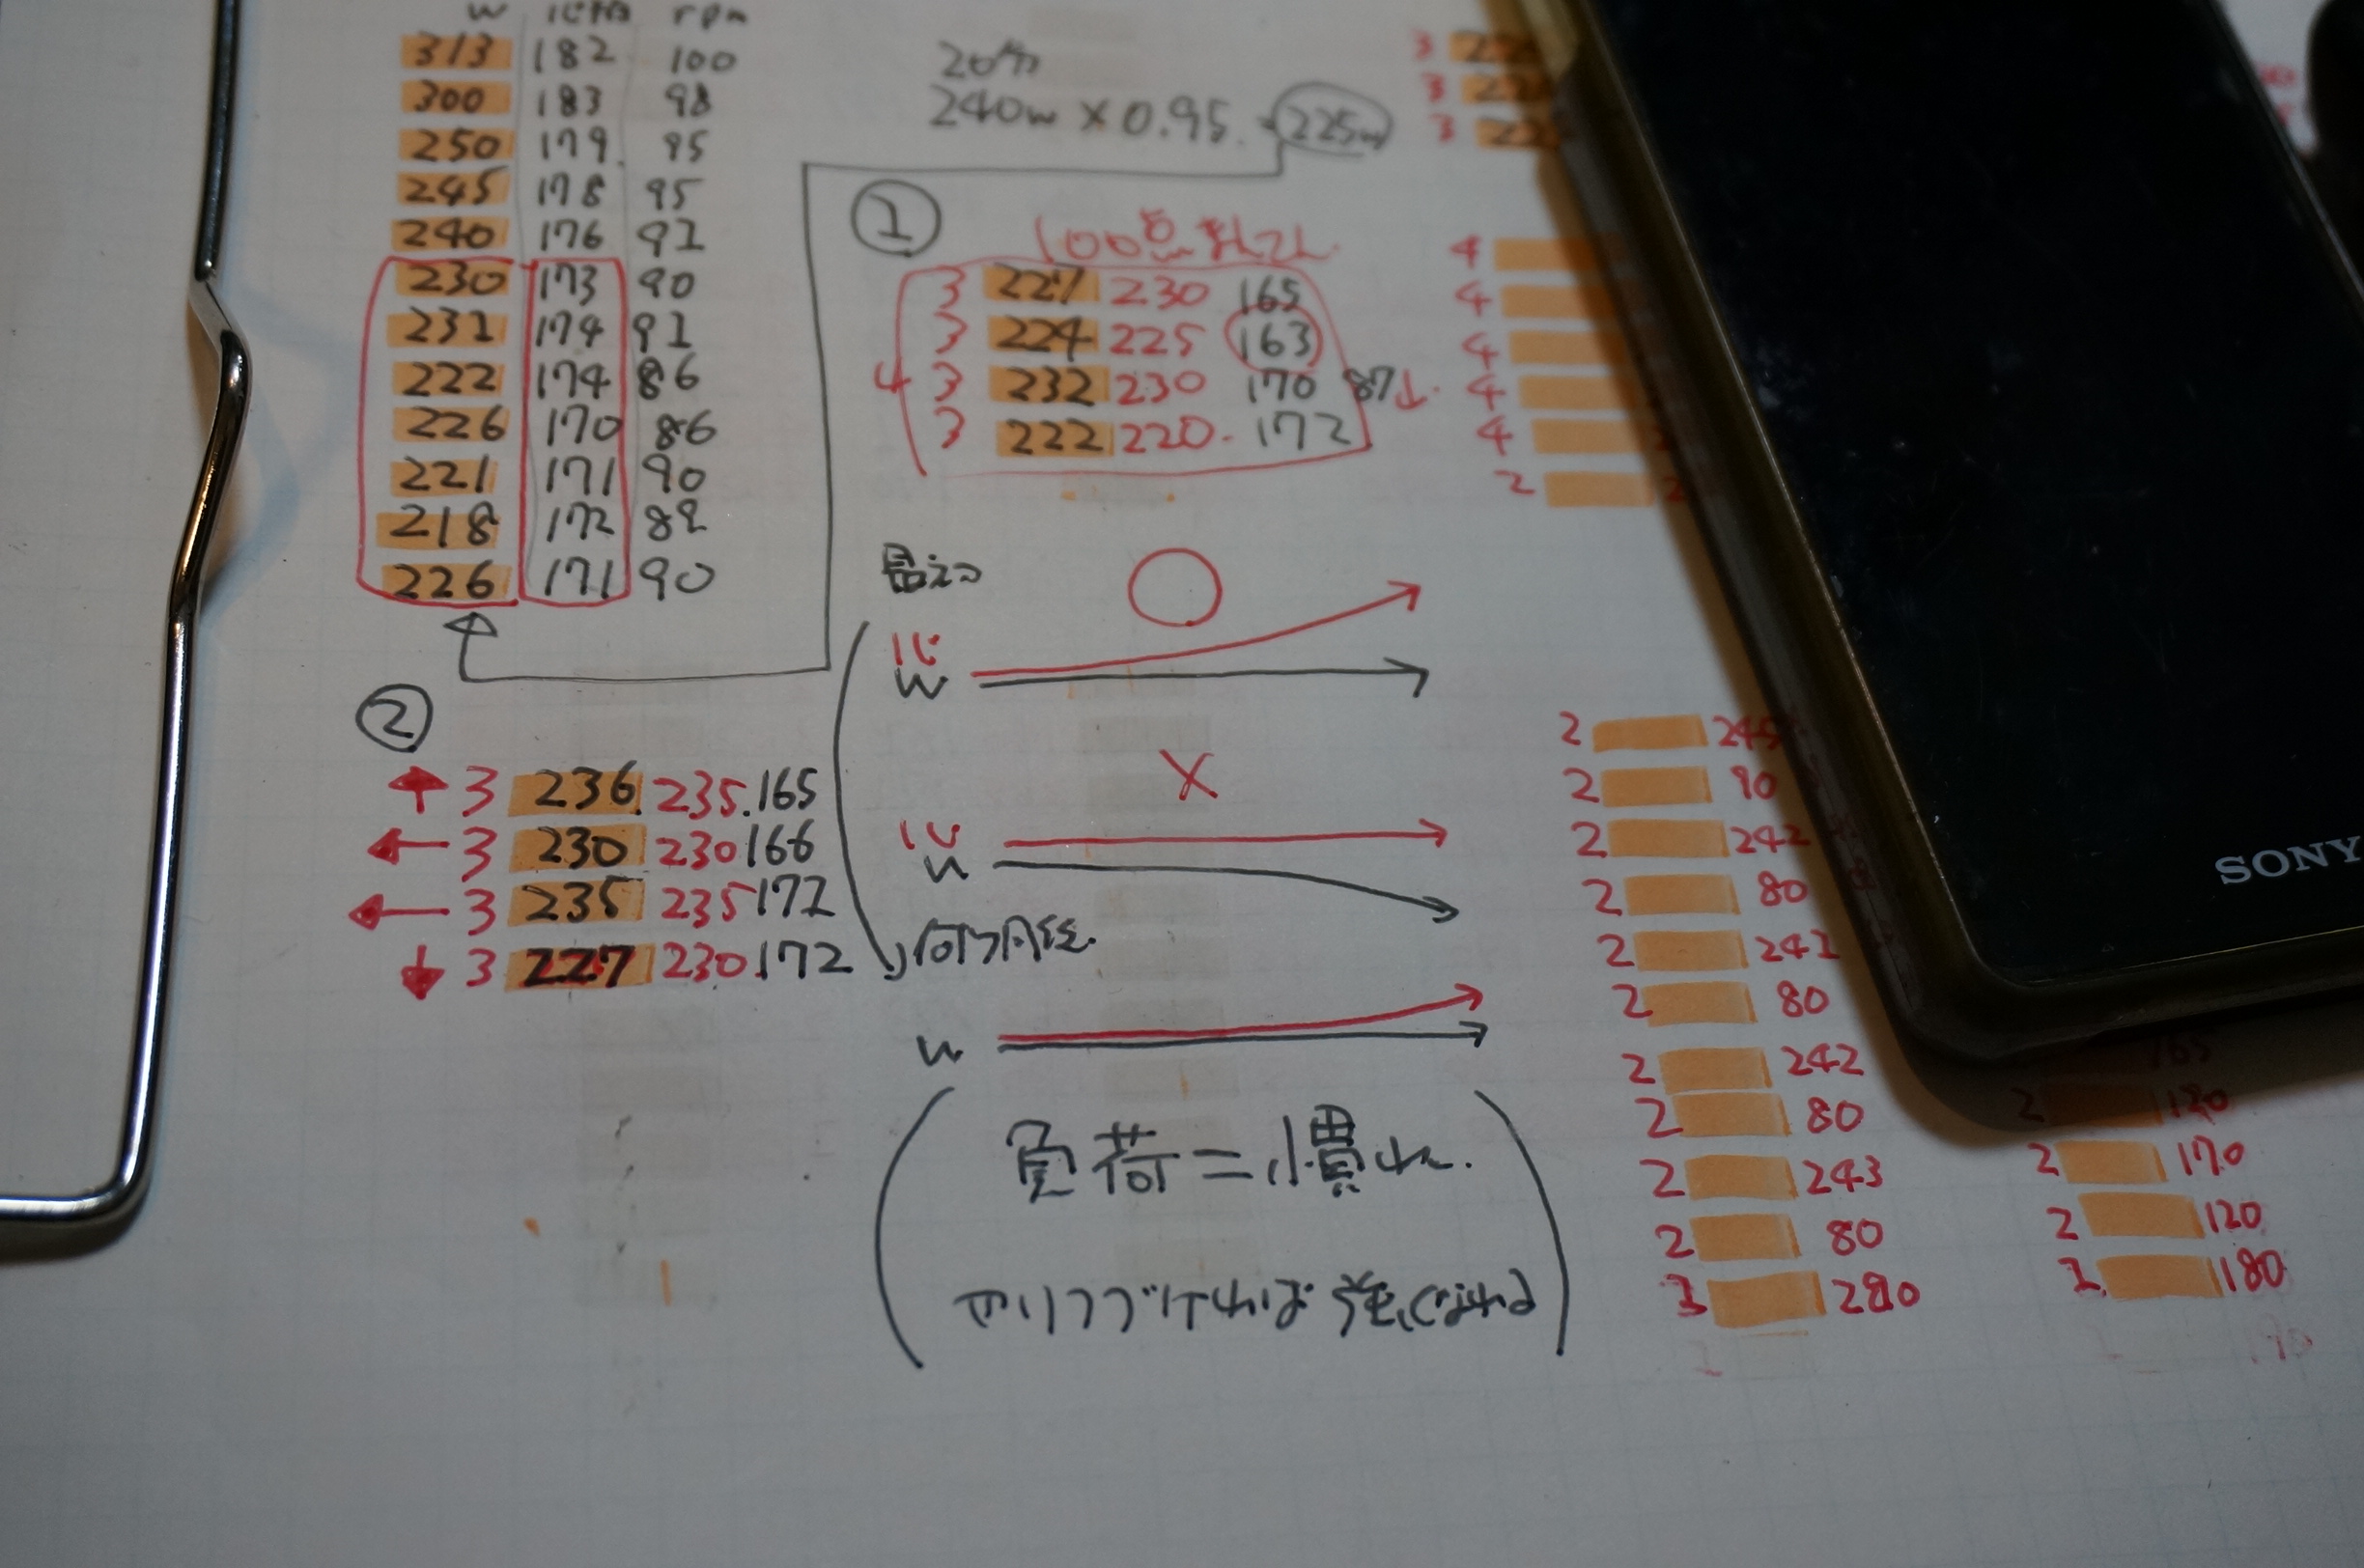 W 心拍 rpm
313 182 100
300 183 98
250 179 95
245 178 95
240 176 91
230 173 90
231 174 91
222 174 86
226 170 86
221 171 90
218 172 89
226 171 90
20分
240w × 0.95 = 225w
①
100点
3 227 230 165
3 224 225 163
4 3 232 230 170 87↓
3 222 220. 172
②
↑ 3 236 235. 165
← 3 230 230 166
← 3 235 235 171
↓ 3 227 230. 172
最初
○
心
W
×
心
W
何ヶ月後
W
負荷=慣れ.
やりつづければ強くなれる
3
3
3
4
4
4
4
4
2
2 245
2 90
2 242
2 80
2 241
2 80
2 242
2 80
2 243
2 80
1 280
2 120
2 170
2 120
1 180
SONY